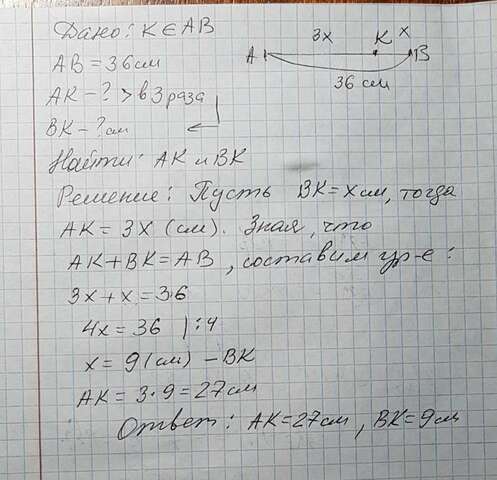 Дано: K ∈ AB
AB = 36 см
AK - ? > в 3 раза
BK - ? см
3x K x
A B
36 см
Найти: AK и BK
Решение: Пусть BK = x см, тогда
AK = 3x (см). Зная, что
AK + BK = AB, составим ур-е:
3x + x = 36
4x = 36 | :4
x = 9 (см) - BK
AK = 3 · 9 = 27 см
Ответ: AK = 27 см, BK = 9 см